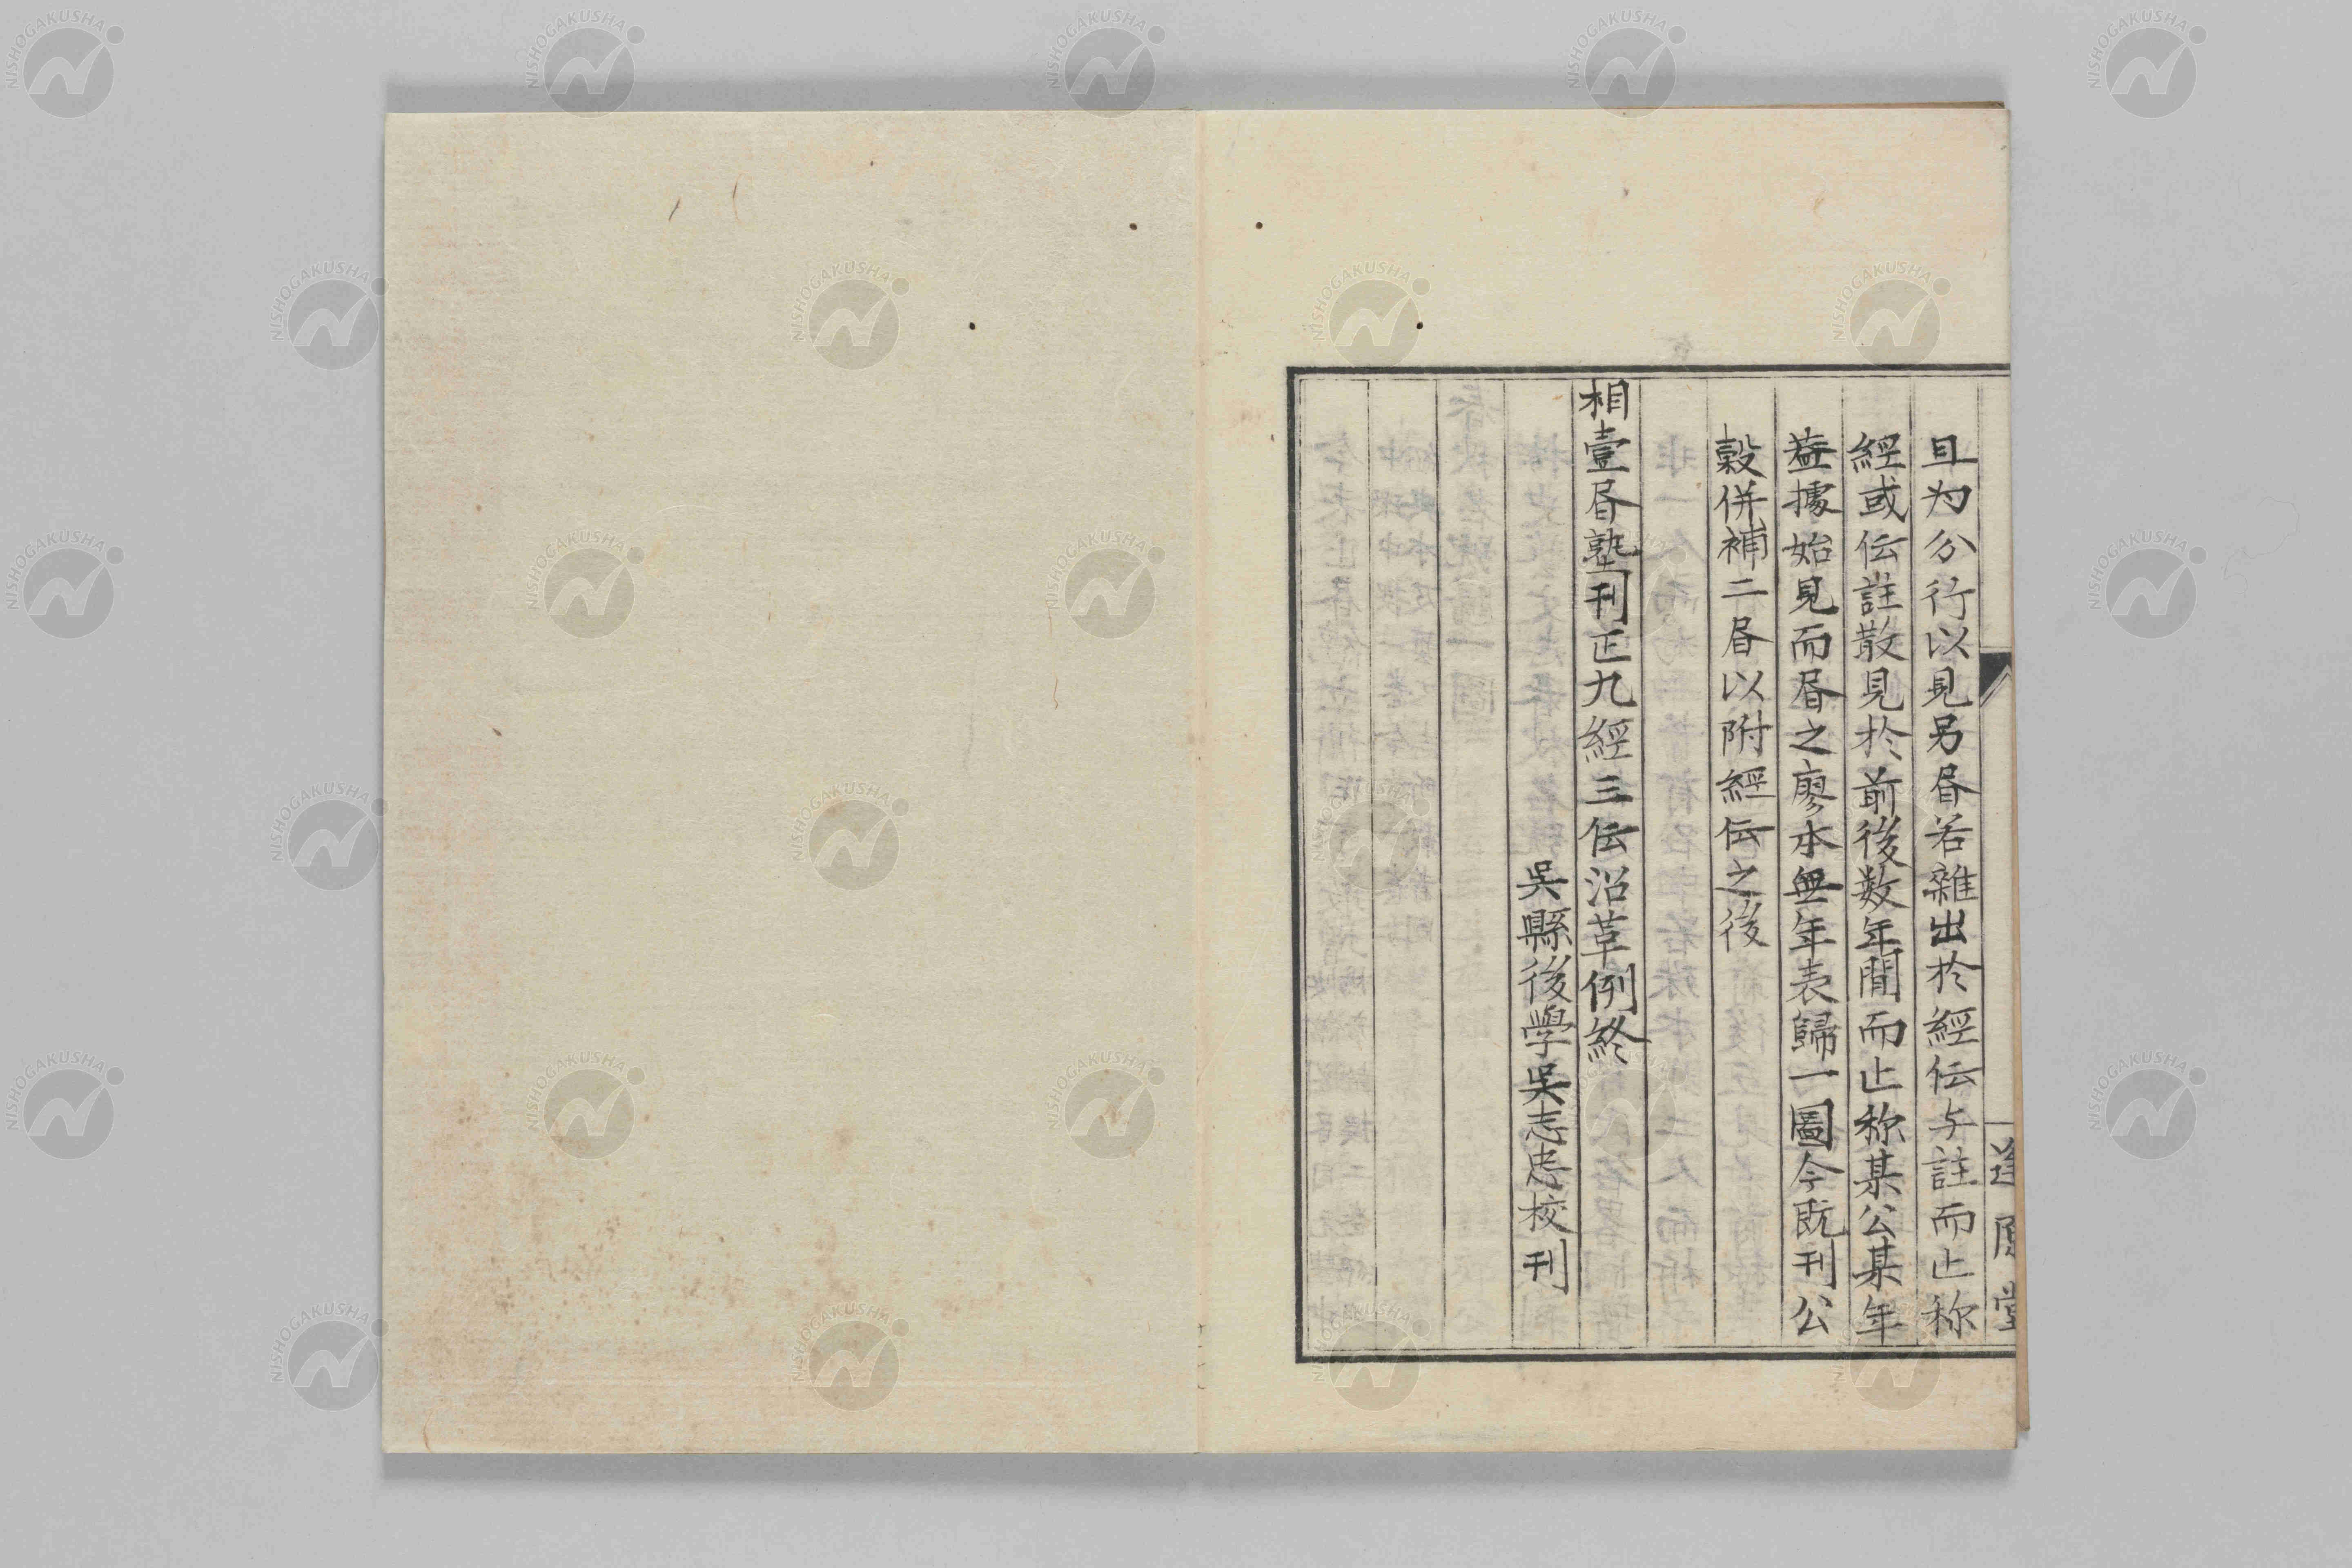 且为分行以見另㫺若雜出於經伝与註而止称
經或伝註散見於前後数年間而止称某公某年
葢據始見而㫺之廖本無年表歸一圖今既刊公
穀併補二㫺以附經伝之後
相壹㫺塾刊正九經三伝沿革例終
吳縣後學吳志忠校刊
堂
NISHOGAKUSHA